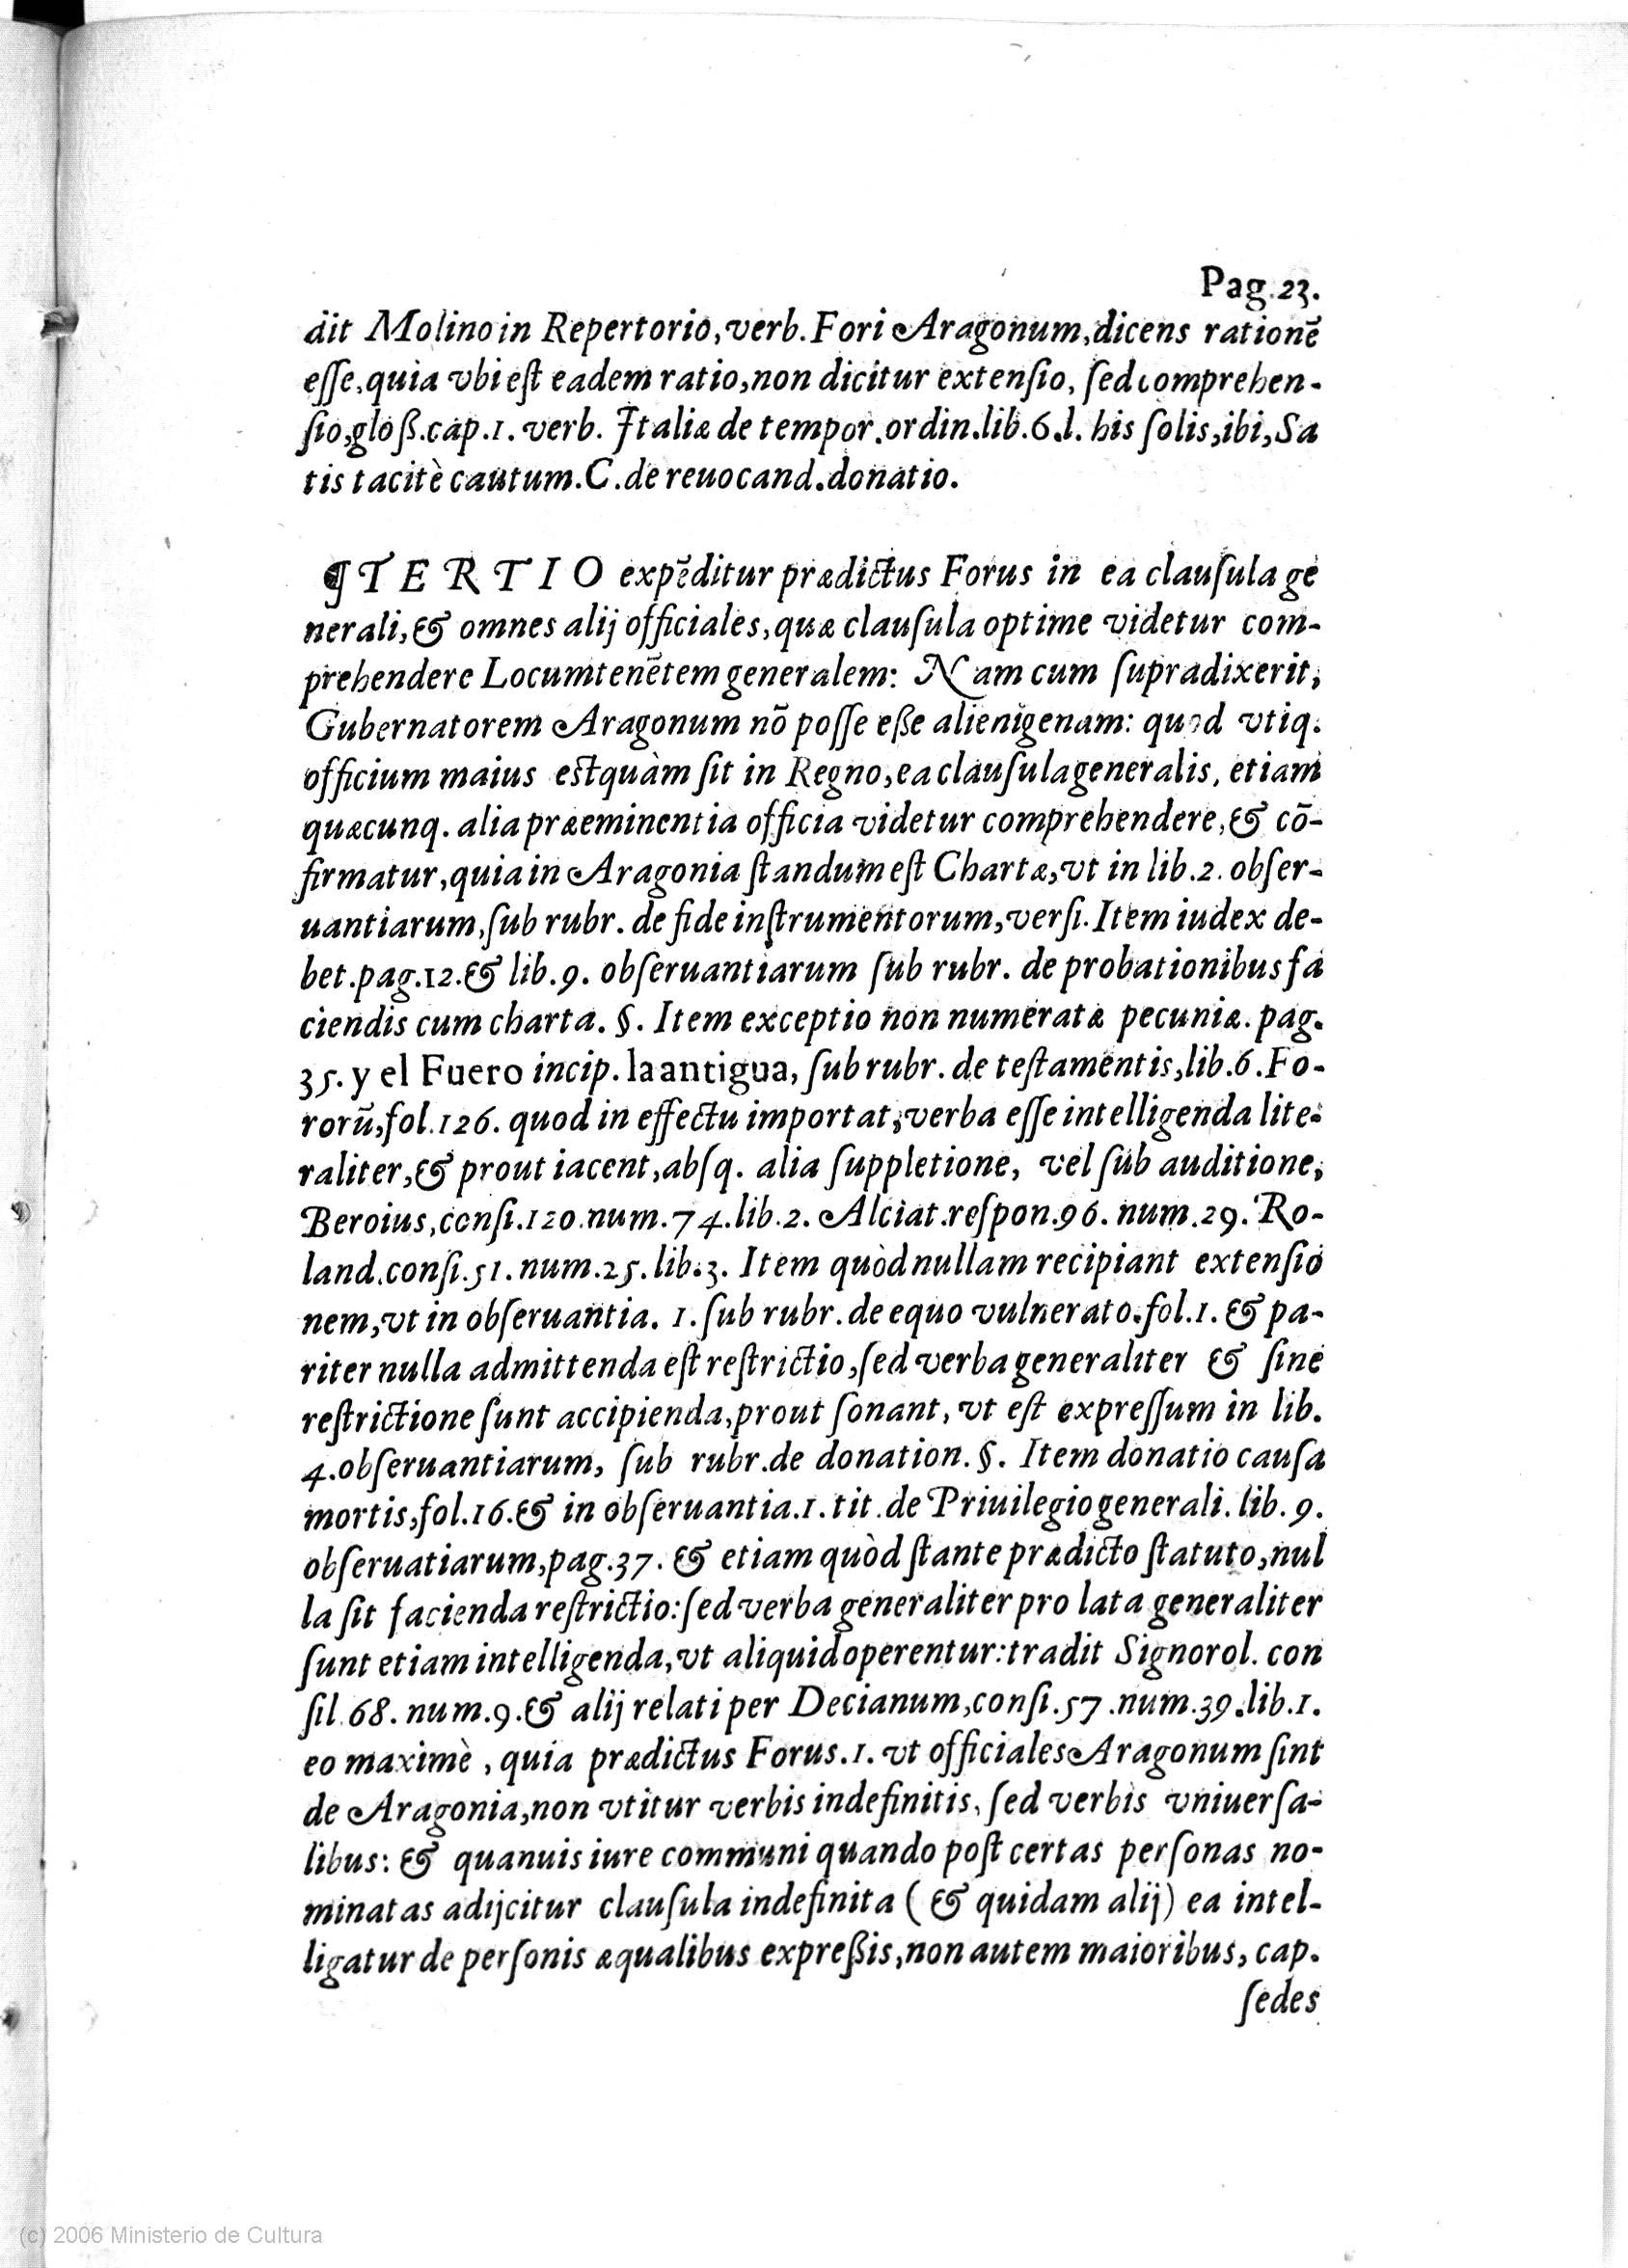 Pag.23.
dit Molino in Repertorio, verb. Fori Aragonum, dicens rationẽ
eſſe, quia vbi eſt eadem ratio, non dicitur extenſio, ſed comprehen-
ſio, gloß. cap. 1. verb. Italiæ de tempor. ordin. lib. 6. l. his ſolis, ibi, Sa
tis tacitè cautum. C. de reuocand. donatio.
¶ TERTIO expẽditur prædictus Forus in ea clauſula ge
nerali, & omnes alij officiales, quæ clauſula optime videtur com-
prehendere Locumtenẽtem generalem: Nam cum ſupradixerit,
Gubernatorem Aragonum nõ poſſe eße alienigenam: quod vtiq.
officium maius est quàm ſit in Regno, ea clauſula generalis, etiam
quæcunq. alia præeminentia officia videtur comprehendere, & cõ-
firmatur, quia in Aragonia ſtandum eſt Chartæ, vt in lib. 2. obſer-
uantiarum, ſub rubr. de fide inſtrumentorum, verſi. Item iudex de-
bet. pag. 12. & lib. 9. obſeruantiarum ſub rubr. de probationibus fa
ciendis cum charta. §. Item exceptio non numeratæ pecuniæ. pag.
35. y el Fuero incip. la antigua, ſub rubr. de teſtamentis, lib. 6. Fo-
rorũ, fol. 126. quod in effectu importat, verba eſſe intelligenda lite-
raliter, & prout iacent, abſq. alia ſuppletione, vel ſub auditione,
Beroius, conſi. 120. num. 74. lib. 2. Alciat. reſpon. 96. num. 29. Ro-
land. conſi. 51. num. 25. lib. 3. Item quòd nullam recipiant extenſio
nem, vt in obſeruantia. 1. ſub rubr. de equo vulnerato. fol. 1. & pa-
riter nulla admittenda eſt reſtrictio, ſed verba generaliter & ſine
reſtrictione ſunt accipienda, prout ſonant, vt eſt expreſſum in lib.
4. obſeruantiarum, ſub rubr. de donation. §. Item donatio cauſa
mortis, fol. 16. & in obſeruantia. 1. tit. de Priuilegio generali. lib. 9.
obſeruatiarum, pag. 37. & etiam quòd ſtante prædicto ſtatuto, nul
la ſit facienda reſtrictio: ſed verba generaliter pro lata generaliter
ſunt etiam intelligenda, vt aliquid operentur: tradit Signorol. con
ſil. 68. num. 9. & alij relati per Decianum, conſi. 57. num. 39. lib. 1.
eo maximè, quia prædictus Forus. 1. vt officiales Aragonum ſint
de Aragonia, non vtitur verbis indefinitis, ſed verbis vniuerſa-
libus: & quanuis iure communi quando poſt certas perſonas no-
minatas adijcitur clauſula indefinita (& quidam alij) ea intel-
ligatur de perſonis æqualibus expreßis, non autem maioribus, cap.
ſedes
(c) 2006 Ministerio de Cultura